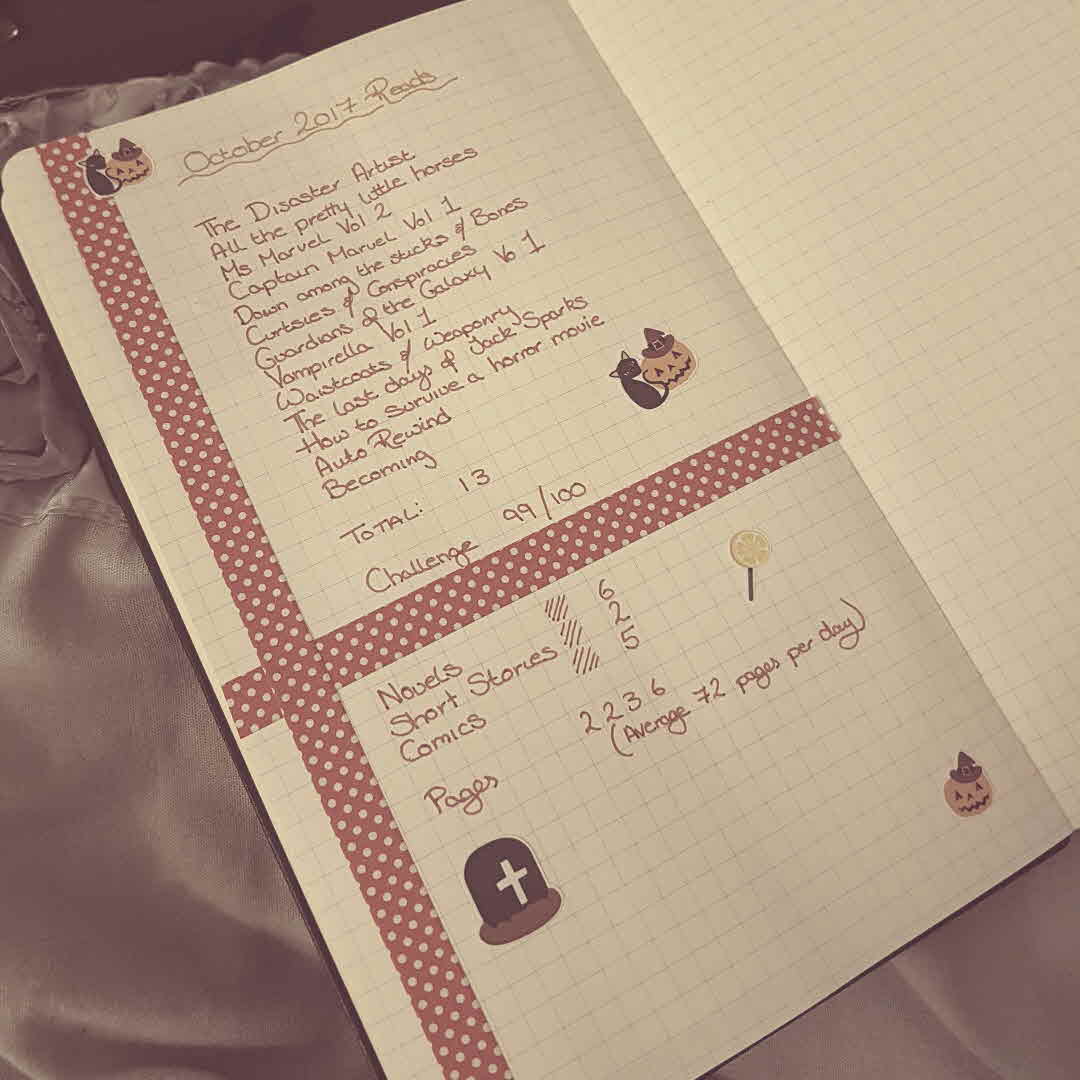 October 2017 Reads
The Disaster Artist
All the pretty little horses
Ms Marvel Vol 2
Captain Marvel Vol 1
Down among the sticks & Bones
Curtsies & Conspiracies
Guardians of the Galaxy Vo 1
Vampirella Vol 1
Waistcoats & Weaponry
The last days of Jack Sparks
How to survive a horror movie
Auto Rewind
Becoming
TOTAL: 13
Challenge 99/100
Novels 6
Short Stories 2
Comics 5
Pages 2236
(Average 72 pages per day)